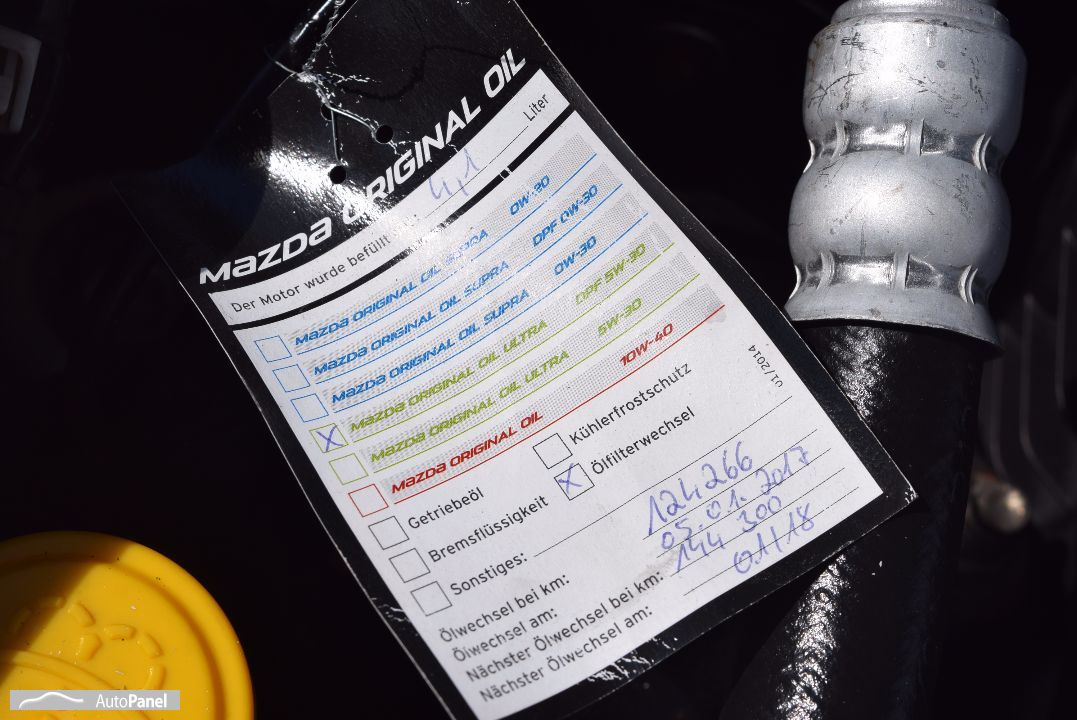 mazda ORIGINAL OIL
Der Motor wurde befüllt 4,1 Liter
mazda ORIGINAL OIL SUPRA 0W-30
mazda ORIGINAL OIL SUPRA DPF 0W-30
mazda ORIGINAL OIL SUPRA 0W-30
X mazda ORIGINAL OIL ULTRA DPF 5W-30
mazda ORIGINAL OIL ULTRA 5W-30
mazda ORIGINAL OIL 10W-40
Getriebeöl Kühlerfrostschutz
Bremsflüssigkeit X Ölfilterwechsel
Sonstiges:
01/2014
Ölwechsel bei km: 124 266
Ölwechsel am: 05.01.2017
Nächster Ölwechsel bei km: 144 300
Nächster Ölwechsel am: 01/18
AutoPanel